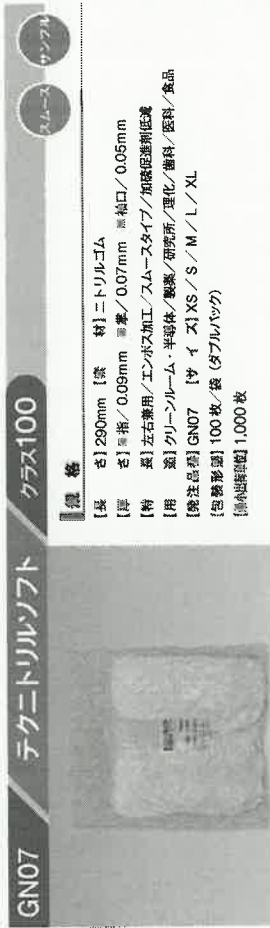 GN07 テクニトリルソフト クラス100
スムース サンプル
規格
【長 さ】290mm 【素 材】ニトリルゴム
【厚 さ】■指/0.09mm ■掌/0.07mm ■袖口/0.05mm
【特 長】左右兼用/エンボス加工/スムースタイプ/加硫促進剤低減
【用 途】クリーンルーム・半導体/製薬/研究所/理化/歯科/医科/食品
【発注品番】GN07 【サ イ ズ】XS/S/M/L/XL
【包装形態】100枚/袋(ダブルパック)
【最小出荷単位】1,000枚